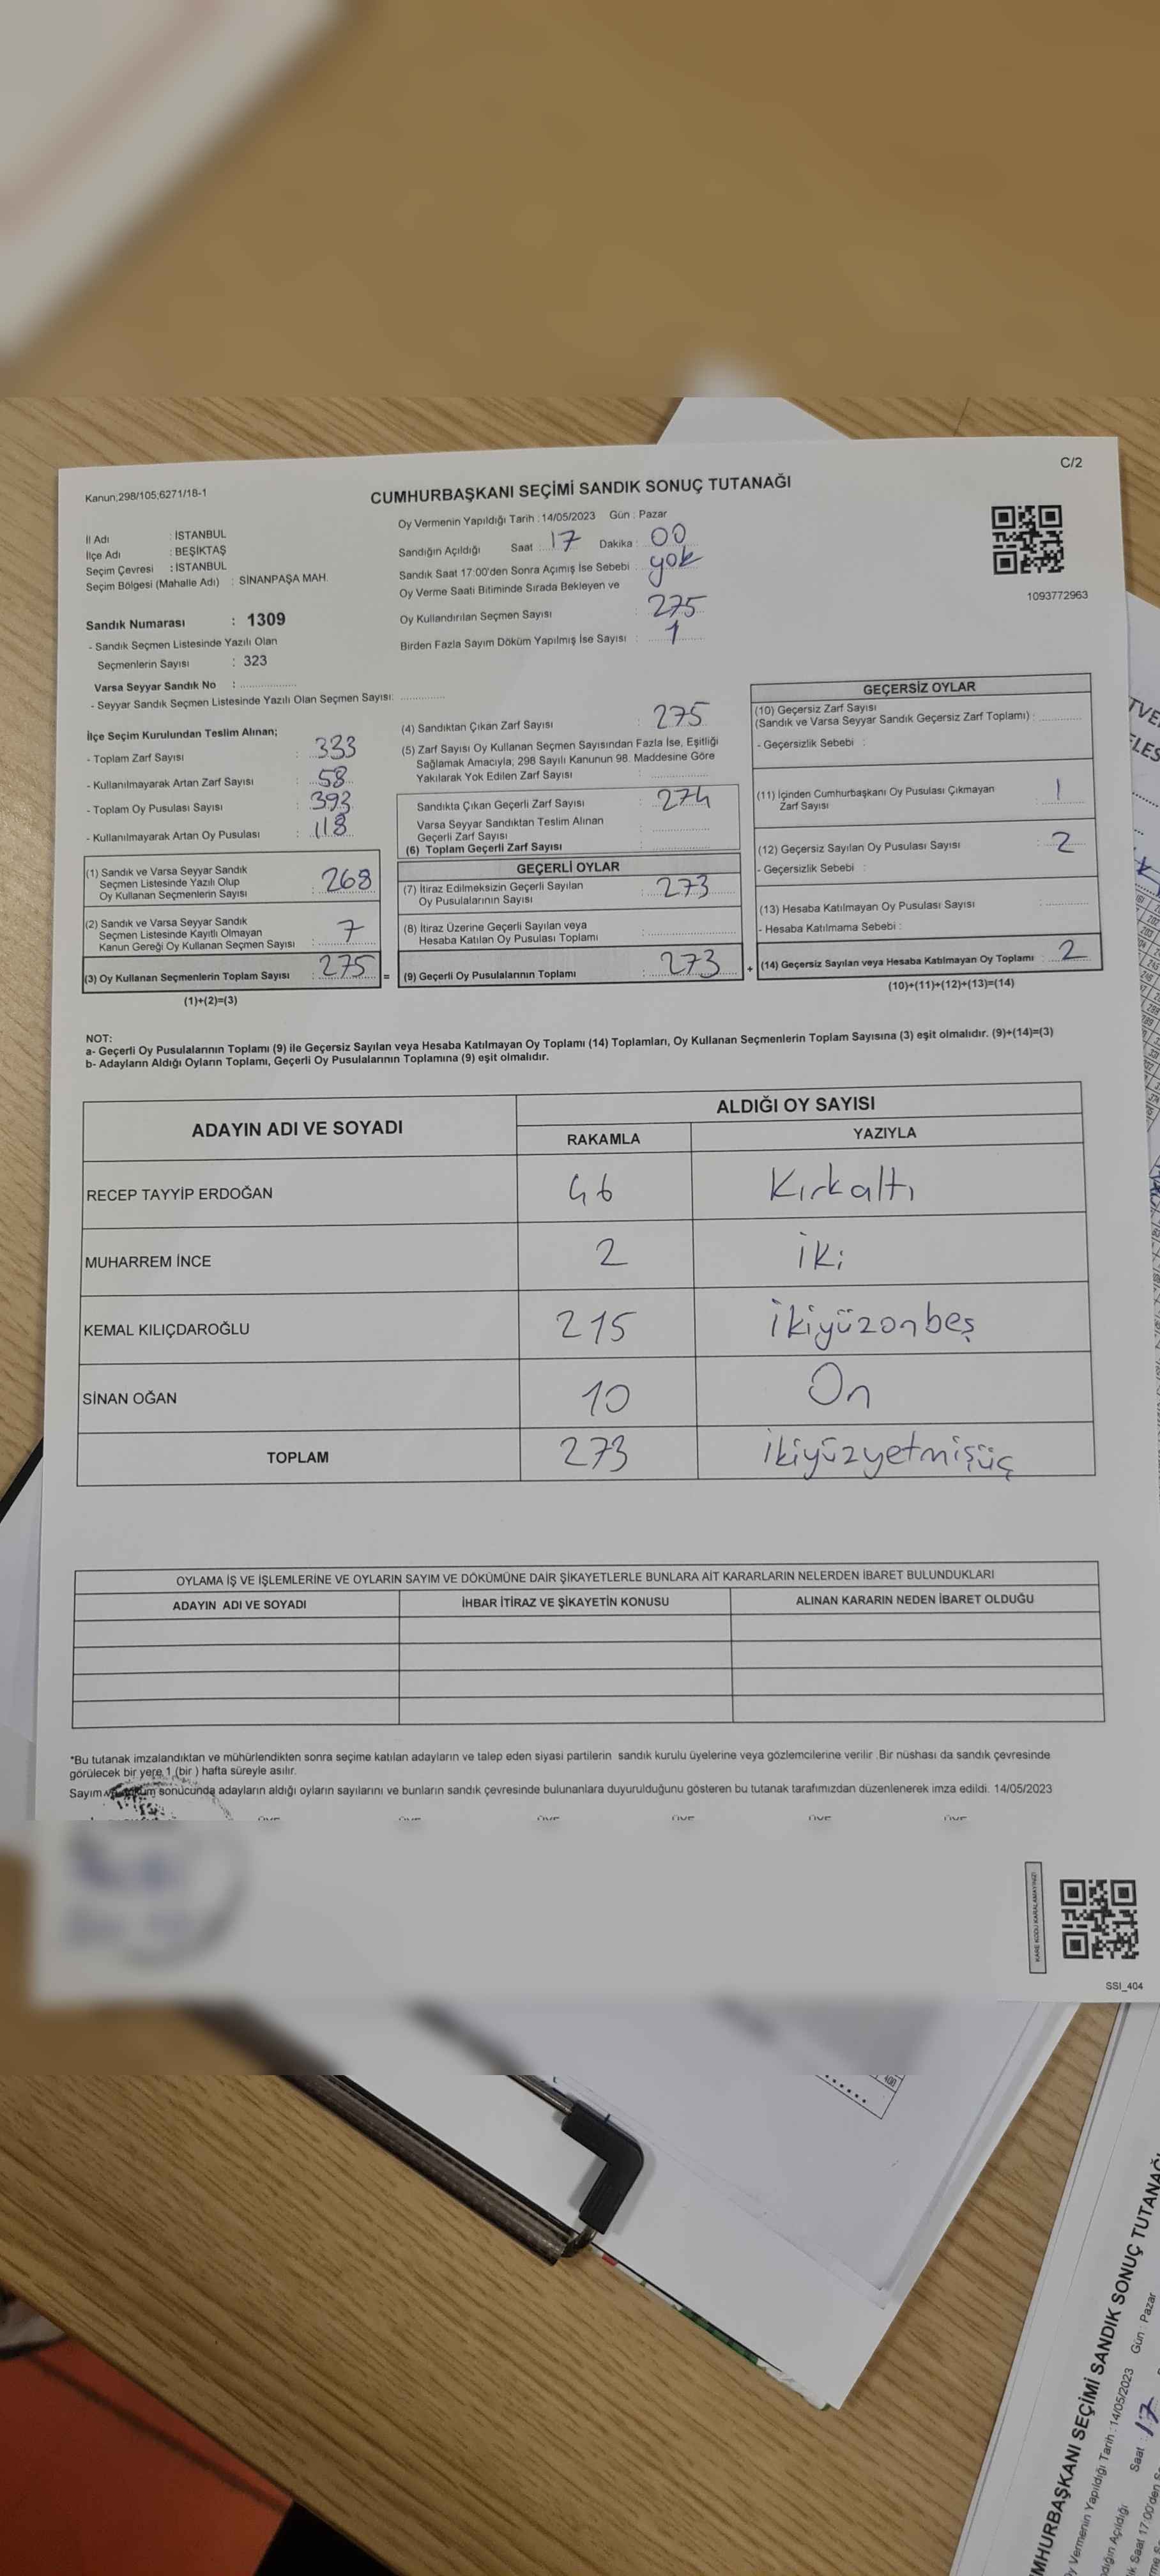 C/2
Kanun,298/105,6271/18-1
CUMHURBAŞKANI SEÇİMİ SANDIK SONUÇ TUTANAĞI
İl Adı : İSTANBUL
İlçe Adı : BEŞİKTAŞ
Seçim Çevresi : İSTANBUL
Seçim Bölgesi (Mahalle Adı) : SİNANPAŞA MAH.
Sandık Numarası : 1309
- Sandık Seçmen Listesinde Yazılı Olan
Seçmenlerin Sayısı : 323
Varsa Seyyar Sandık No : ................
- Seyyar Sandık Seçmen Listesinde Yazılı Olan Seçmen Sayısı: ............
Oy Vermenin Yapıldığı Tarih : 14/05/2023 Gün : Pazar
Sandığın Açıldığı Saat : 17 Dakika : 00
Sandık Saat 17:00'den Sonra Açımış İse Sebebi : yok
Oy Verme Saati Bitiminde Sırada Bekleyen ve
Oy Kullandırılan Seçmen Sayısı : 275
Birden Fazla Sayım Döküm Yapılmış İse Sayısı : 1
1093772963
İlçe Seçim Kurulundan Teslim Alınan;
- Toplam Zarf Sayısı : 333
- Kullanılmayarak Artan Zarf Sayısı : 58
- Toplam Oy Pusulası Sayısı : 393
- Kullanılmayarak Artan Oy Pusulası : 118
(1) Sandık ve Varsa Seyyar Sandık
Seçmen Listesinde Yazılı Olup
Oy Kullanan Seçmenlerin Sayısı : 268
(2) Sandık ve Varsa Seyyar Sandık
Seçmen Listesinde Kayıtlı Olmayan
Kanun Gereği Oy Kullanan Seçmen Sayısı : 7
(3) Oy Kullanan Seçmenlerin Toplam Sayısı : 275 =
(1)+(2)=(3)
(4) Sandıktan Çıkan Zarf Sayısı : 275
(5) Zarf Sayısı Oy Kullanan Seçmen Sayısından Fazla İse, Eşitliği
Sağlamak Amacıyla; 298 Sayılı Kanunun 98. Maddesine Göre
Yakılarak Yok Edilen Zarf Sayısı : ................
Sandıkta Çıkan Geçerli Zarf Sayısı : 274
Varsa Seyyar Sandıktan Teslim Alınan
Geçerli Zarf Sayısı : ................
(6) Toplam Geçerli Zarf Sayısı : ................
GEÇERLİ OYLAR
(7) İtiraz Edilmeksizin Geçerli Sayılan
Oy Pusulalarının Sayısı : 273
(8) İtiraz Üzerine Geçerli Sayılan veya
Hesaba Katılan Oy Pusulası Toplamı : ................
(9) Geçerli Oy Pusulalarının Toplamı : 273 +
GEÇERSİZ OYLAR
(10) Geçersiz Zarf Sayısı
(Sandık ve Varsa Seyyar Sandık Geçersiz Zarf Toplamı) : ............
- Geçersizlik Sebebi :
(11) İçinden Cumhurbaşkanı Oy Pusulası Çıkmayan
Zarf Sayısı : 1
(12) Geçersiz Sayılan Oy Pusulası Sayısı : 2
- Geçersizlik Sebebi :
(13) Hesaba Katılmayan Oy Pusulası Sayısı : ............
- Hesaba Katılmama Sebebi :
(14) Geçersiz Sayılan veya Hesaba Katılmayan Oy Toplamı : 2
(10)+(11)+(12)+(13)=(14)
NOT:
a- Geçerli Oy Pusulalarının Toplamı (9) ile Geçersiz Sayılan veya Hesaba Katılmayan Oy Toplamı (14) Toplamları, Oy Kullanan Seçmenlerin Toplam Sayısına (3) eşit olmalıdır. (9)+(14)=(3)
b- Adayların Aldığı Oyların Toplamı, Geçerli Oy Pusulalarının Toplamına (9) eşit olmalıdır.
ADAYIN ADI VE SOYADI ALDIĞI OY SAYISI
RAKAMLA YAZIYLA
RECEP TAYYİP ERDOĞAN 46 Kırkaltı
MUHARREM İNCE 2 iki
KEMAL KILIÇDAROĞLU 215 ikiyüzonbeş
SİNAN OĞAN 10 On
TOPLAM 273 ikiyüzyetmişüç
OYLAMA İŞ VE İŞLEMLERİNE VE OYLARIN SAYIM VE DÖKÜMÜNE DAİR ŞİKAYETLERLE BUNLARA AİT KARARLARIN NELERDEN İBARET BULUNDUKLARI
ADAYIN ADI VE SOYADI İHBAR İTİRAZ VE ŞİKAYETİN KONUSU ALINAN KARARIN NEDEN İBARET OLDUĞU
*Bu tutanak imzalandıktan ve mühürlendikten sonra seçime katılan adayların ve talep eden siyasi partilerin sandık kurulu üyelerine veya gözlemcilerine verilir .Bir nüshası da sandık çevresinde
görülecek bir yere 1 (bir ) hafta süreyle asılır.
Sayım sonucunda adayların aldığı oyların sayılarını ve bunların sandık çevresinde bulunanlara duyurulduğunu gösteren bu tutanak tarafımızdan düzenlenerek imza edildi. 14/05/2023
KARE KODU KARALAMAYINIZ!
SSI_404
400
MHURBAŞKANI SEÇİMİ SANDIK SONUÇ TUTANAĞI
Vermenin Yapıldığı Tarih : 14/05/2023 Gün : Pazar
dığın Açıldığı Saat : 17
Saat 17:00'den